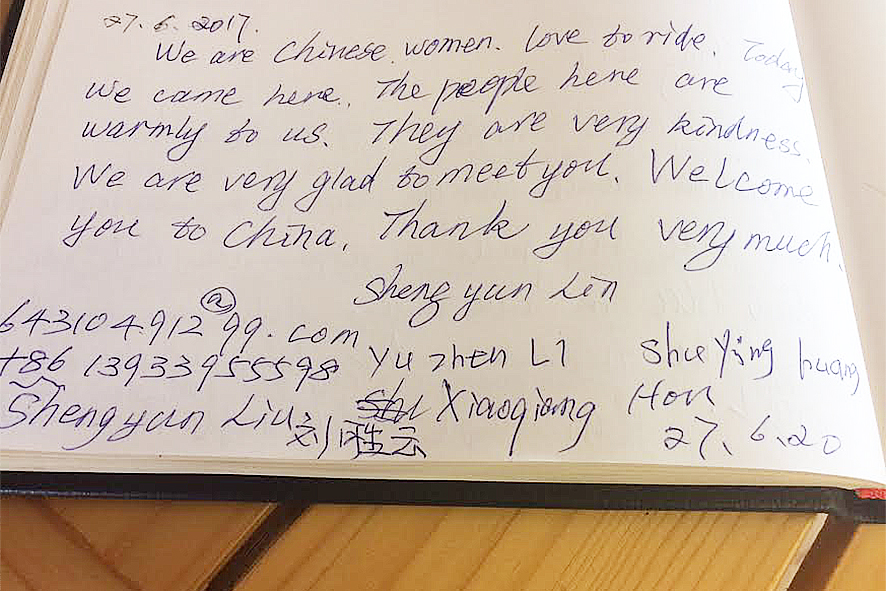 27. 6. 2017.
We are Chinese women. love to ride. Today
we came here. The people here are
warmly to us. They are very kindness.
We are very glad to meet you. Welcome
you to China. Thank you very much.
Sheng yun Liu
643104.912@99.com
+86 13933955598 Yu zhen LI Shu Ying huang
Sheng yun Liu 刘胜云 Xiaoqiang Hou
27. 6. 20